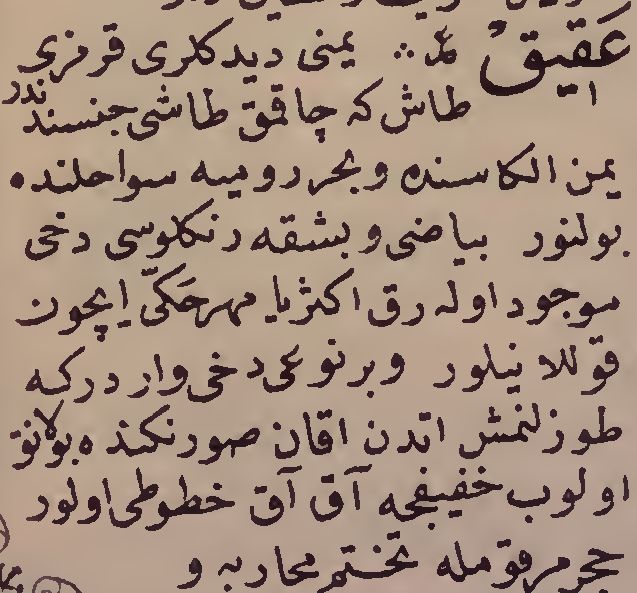 عَقِيقْ يمنى ديدكلرى قرمزى
طاش كه چاقمق طاشى جنسندندر
يمن الكاسنده و بحر روميه سواحلنده
بولنور بياضى و بشقه رنكلوسى دخى
موجود اوله رق اكثريا مهر حكّى ايچون
قوللانيلور و بر نوعى دخى واردر كه
طوزلنمش اتدن اقان صو رنكنده بولانق
اولوب خفيفجه آق آق خطوطى اولور
حجر مرقومله تختم محاربه و